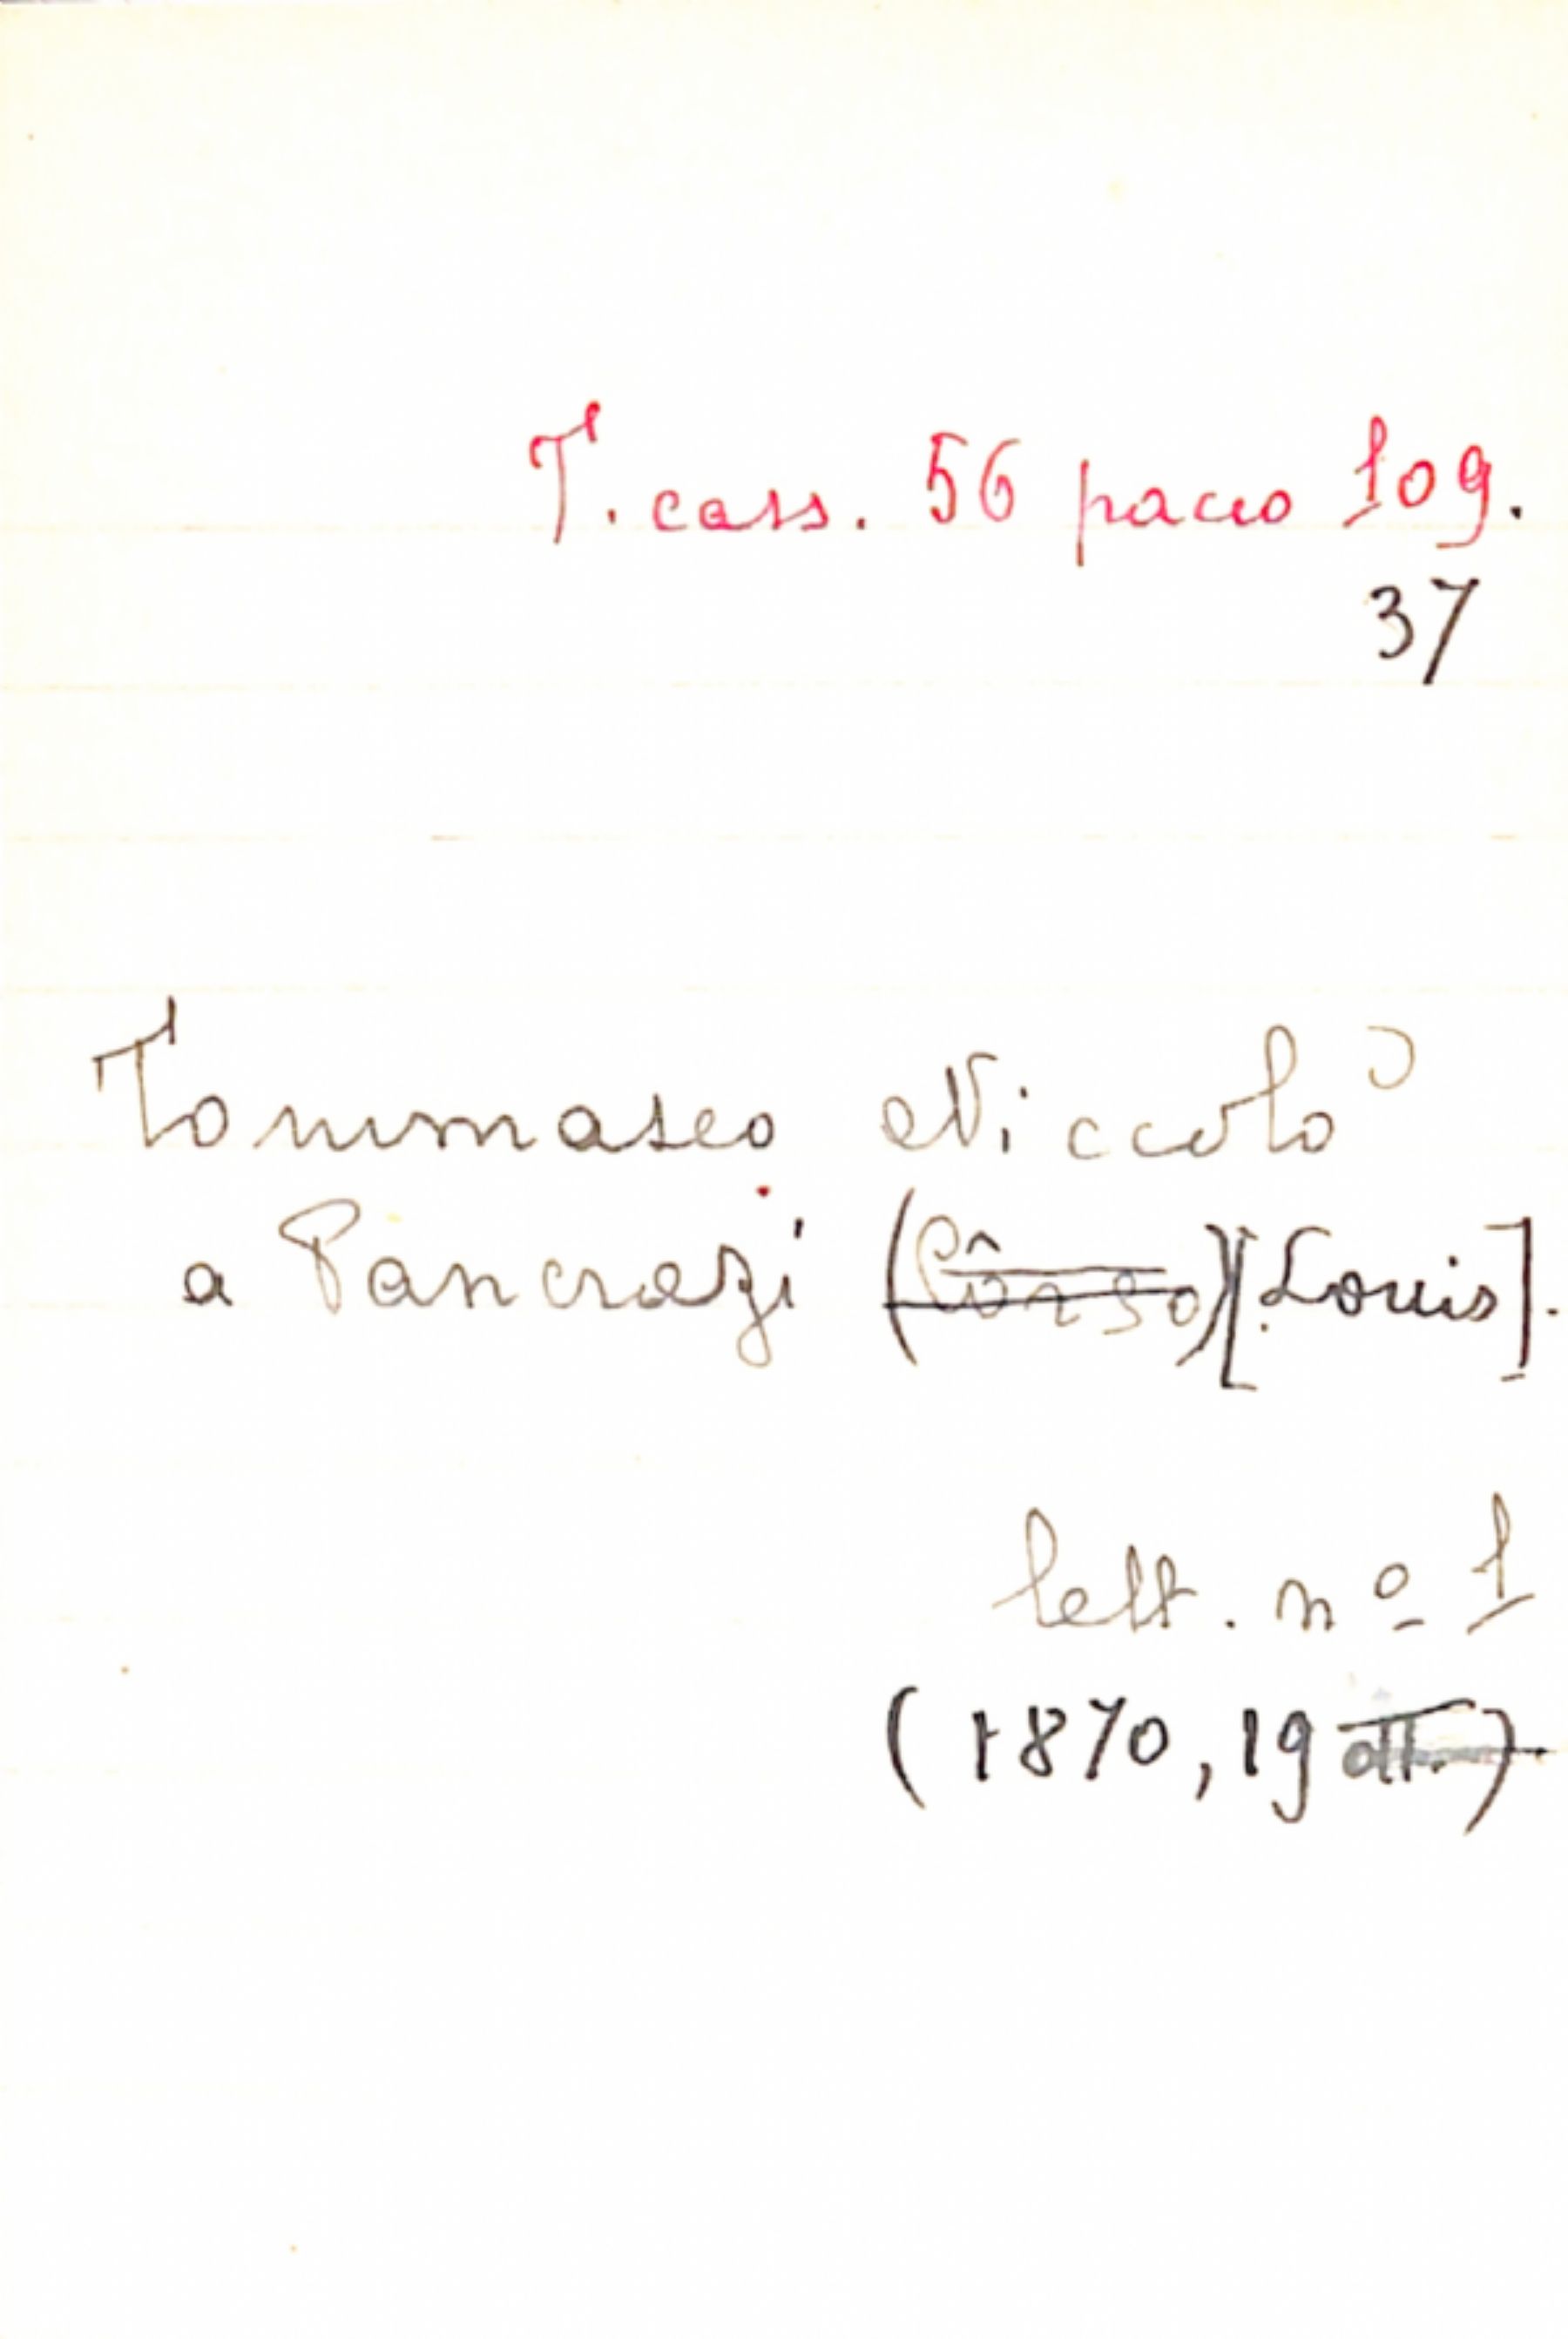 T. cass. 56 pacco 109.
37
Tommaseo Niccolò
a Pancrazi (Côrso) [Louis].
lett. nº 1
(1870, 19 ott.)